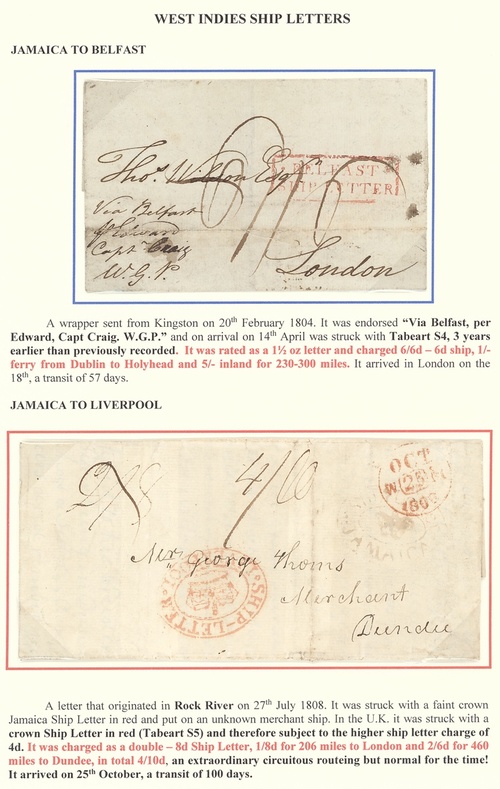 WEST INDIES SHIP LETTERS
JAMAICA TO BELFAST
Thos. Wilson Esqr
BELFAST
SHIP LETTER
6/6
Via Belfast
pr Edward
Captn Craig
W.G.P.
London
A wrapper sent from Kingston on 20th February 1804. It was endorsed “Via Belfast, per
Edward, Capt Craig. W.G.P.” and on arrival on 14th April was struck with Tabeart S4, 3 years
earlier than previously recorded. It was rated as a 1½ oz letter and charged 6/6d – 6d ship, 1/-
ferry from Dublin to Holyhead and 5/- inland for 230-300 miles. It arrived in London on the
18th, a transit of 57 days.
JAMAICA TO LIVERPOOL
2/8
OCT
25
1808
SHIP-LETTER
George Thoms
Merchant
Dundee
A letter that originated in Rock River on 27th July 1808. It was struck with a faint crown
Jamaica Ship Letter in red and put on an unknown merchant ship. In the U.K. it was struck with a
crown Ship Letter in red (Tabeart S5) and therefore subject to the higher ship letter charge of
4d. It was charged as a double – 8d Ship Letter, 1/8d for 206 miles to London and 2/6d for 460
miles to Dundee, in total 4/10d, an extraordinary circuitous routeing but normal for the time!
It arrived on 25th October, a transit of 100 days.